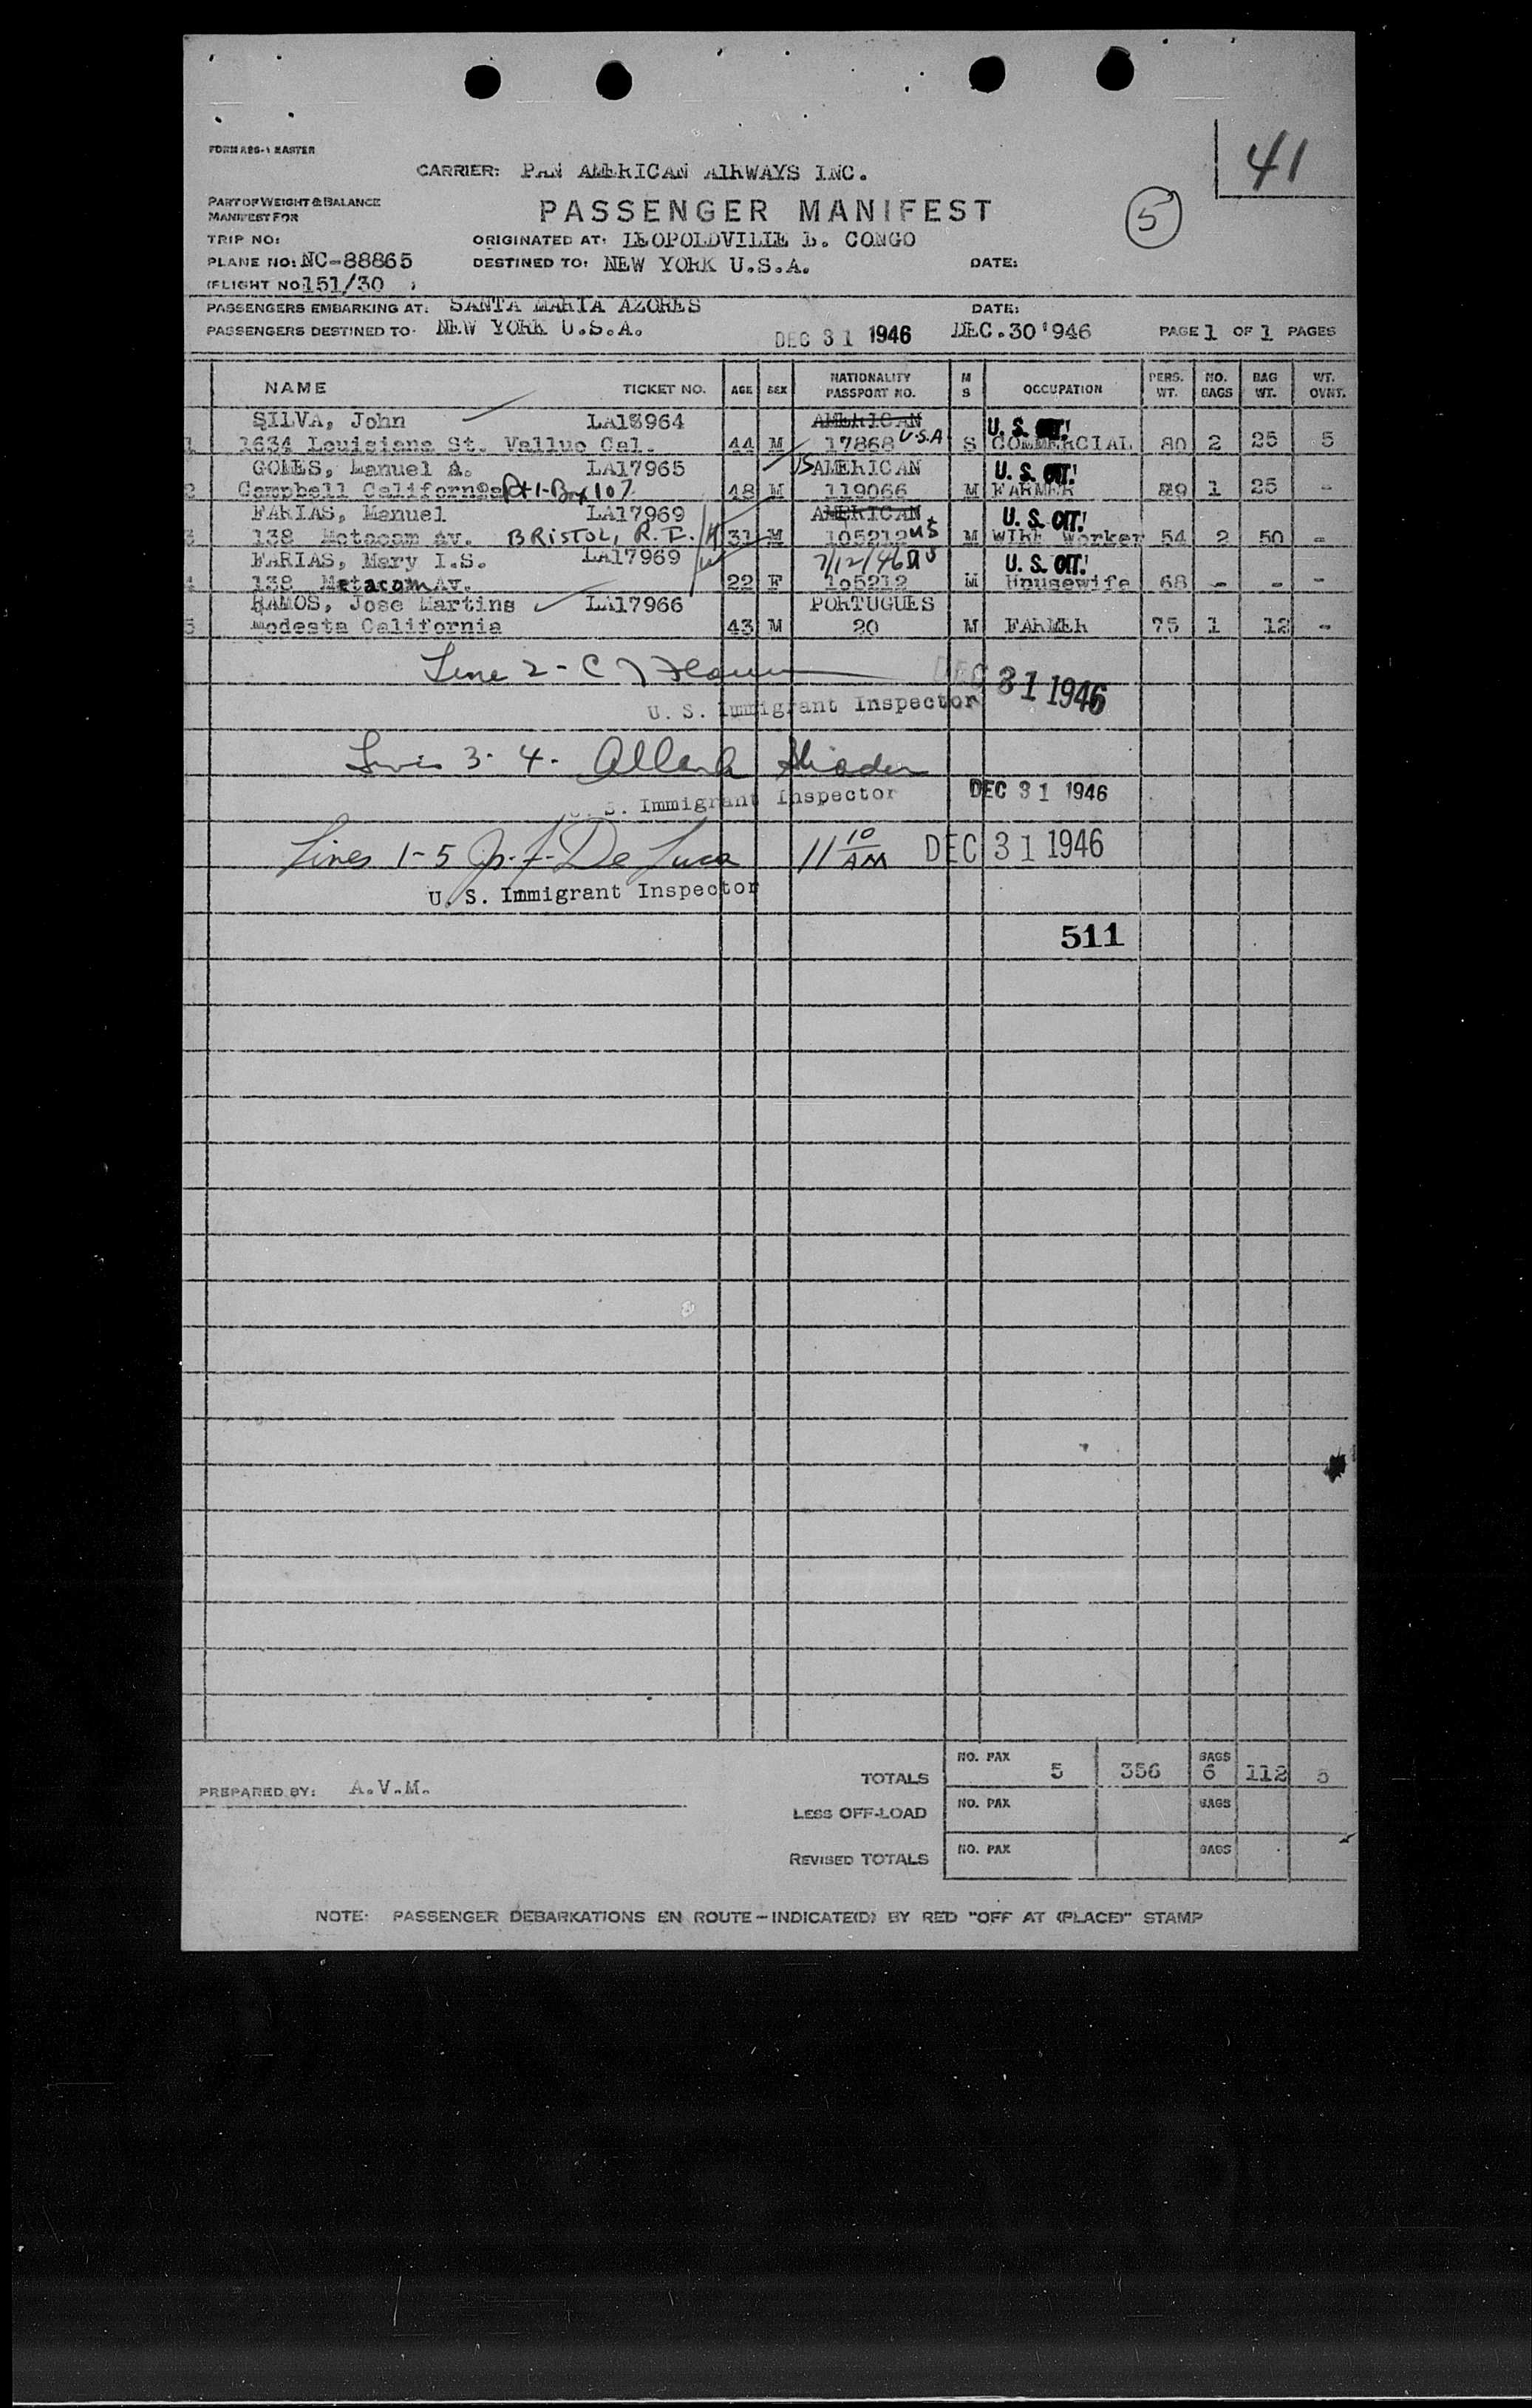 41
FORM ABG-1 MASTER
CARRIER: PAN AMERICAN AIRWAYS INC.
PART OF WEIGHT & BALANCE
MANIFEST FOR
PASSENGER MANIFEST
5
TRIP NO:
ORIGINATED AT: LEOPOLDVILLE B. CONGO
PLANE NO: NC-88865
DESTINED TO: NEW YORK U.S.A.
DATE:
(FLIGHT NO 151/30 )
PASSENGERS EMBARKING AT: SANTA MARIA AZORES
DATE:
PASSENGERS DESTINED TO: NEW YORK U.S.A.
DEC 31 1946
DEC. 30'946
PAGE 1 OF 1 PAGES
NAME TICKET NO. AGE SEX NATIONALITY PASSPORT NO. M S OCCUPATION PERS. WT. NO. BAGS BAG WT. WT. OVNT.
SILVA, John LA13964 AMERICAN U. S. CIT!
1 1634 Louisiana St. Valluo Cal. 44 M 17868 U.S.A S COMMERCIAL 80 2 25 5
GOMES, Manuel A. LA17965 US AMERICAN U. S. CIT!
2 Campbell California Rt 1-Box 107 48 M 119066 M FARMER 1 25 -
FARIAS, Manuel LA17969 AMERICAN U. S. CIT!
3 138 Metacom Av. BRISTOL, R.I. 31 M 105212 US M WIRE Worker 54 2 50 -
FARIAS, Mary I.S. LA17969 7/12/46 US U. S. CIT!
4 138 Metacom Av. 22 F 105212 M Housewife 68 - - -
RAMOS, Jose Martins LA17966 PORTUGUES
5 Modesta California 43 M 20 M FARMER 75 1 12 -
Line 2 - C
DEC 31 1946
U. S. Immigrant Inspector
Lines 3-4-
U. S. Immigrant Inspector
DEC 31 1946
Lines 1-5 De Luca 11 10 AM DEC 31 1946
U. S. Immigrant Inspector
511
TOTALS NO. PAX 5 356 BAGS 6 112 5
PREPARED BY: A.V.M.
LESS OFF-LOAD NO. PAX BAGS
REVISED TOTALS NO. PAX BAGS
NOTE: PASSENGER DEBARKATIONS EN ROUTE - INDICATE(D) BY RED "OFF AT (PLACE)" STAMP